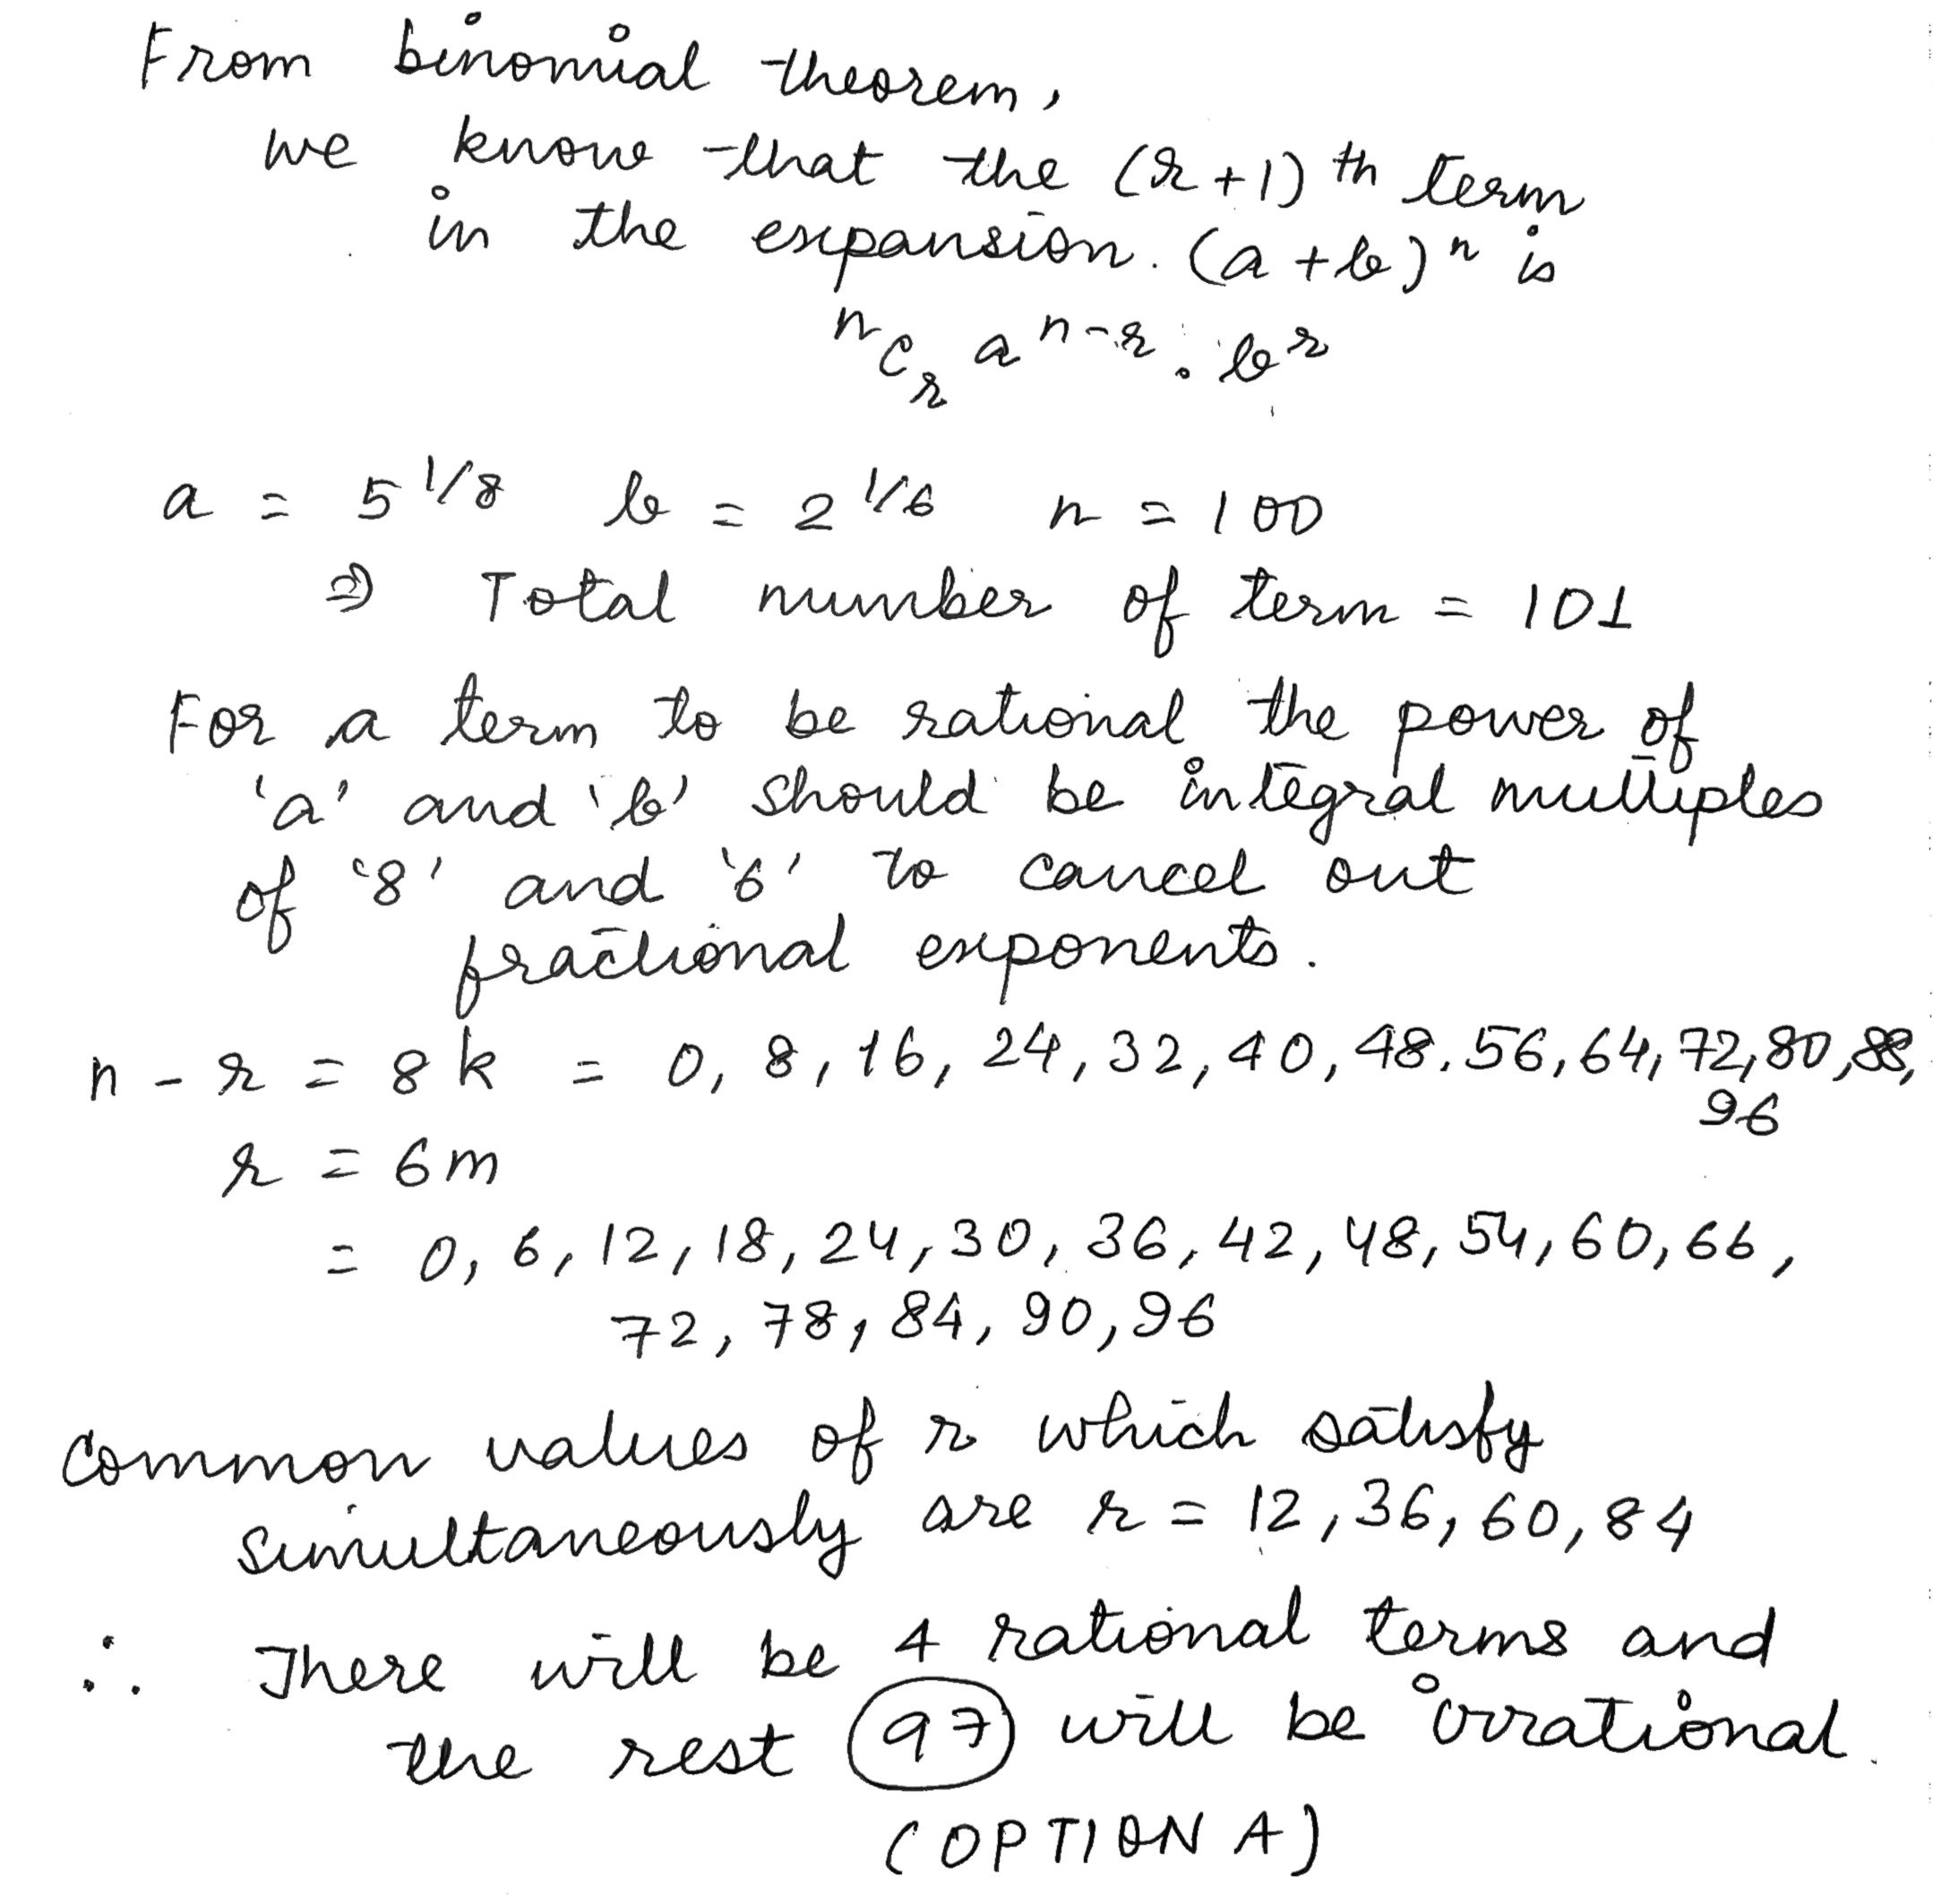 From binomial theorem,
we know that the (r+1)th term
in the expansion. (a+b)ⁿ is
ⁿCᵣ aⁿ⁻ʳ. bʳ
a = 5^1/8 b = 2^1/6 n = 100
⇒ Total number of term = 101
For a term to be rational the power of
'a' and 'b' should be integral multiples
of '8' and '6' to cancel out
fractional exponents.
n - r = 8k = 0, 8, 16, 24, 32, 40, 48, 56, 64, 72, 80, 88,
96
r = 6m
= 0, 6, 12, 18, 24, 30, 36, 42, 48, 54, 60, 66,
72, 78, 84, 90, 96
Common values of r which satisfy
simultaneously are r = 12, 36, 60, 84
∴ There will be 4 rational terms and
the rest 97 will be irrational.
(OPTION A)